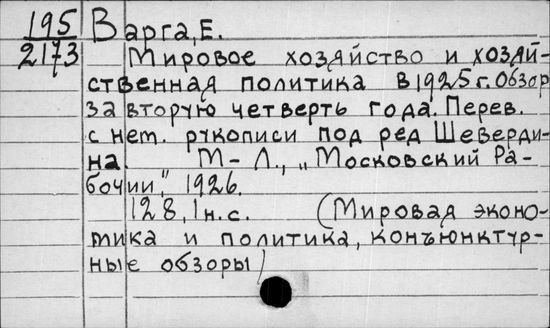 195 Варга, Е.
2173 Мировое хозяйство и хозяй-
ственная политика в 1925 г. Обзор
за вторую четверть года. Перев.
с нем. рукописи под ред Шеверди-
на. М-Л., „Московский Ра-
бочии", 1926.
128, 1 н.с. (Мировая эконо-
мика и политика, конъюнктур-
ные обзоры)